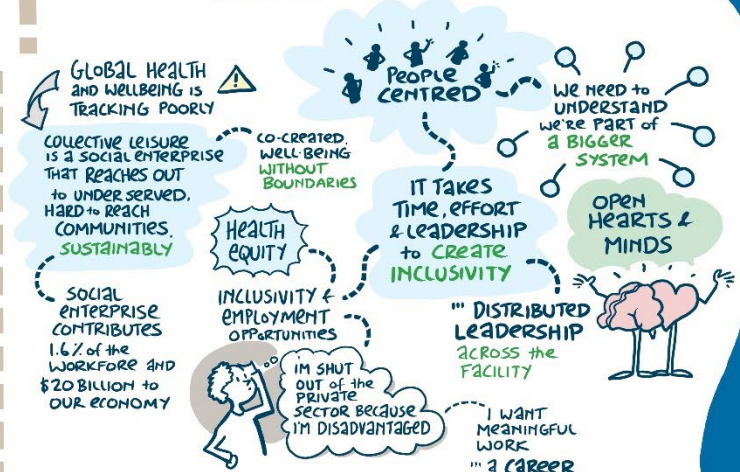 GLOBAL HEALTH
AND WELLBEING IS
TRACKING POORLY
COLLECTIVE LEISURE
IS A SOCIAL ENTERPRISE
THAT REACHES OUT
to UNDER SERVED,
HARD to REACH
COMMUNITIES,
SUSTAINABLY
SOCIAL
ENTERPRISE
CONTRIBUTES
1.6% of the
WORKFORE AND
$20 BILLION to
OUR ECONOMY
CO-CREATED
WELL-BEING
WITHOUT
BOUNDARIES
HEALTH
EQUITY
INCLUSIVITY &
EMPLOYMENT
OPPORTUNITIES
I'M SHUT
OUT of the
PRIVATE
SECTOR BECAUSE
I'M DISADVANTAGED
PEOPLE
CENTRED
IT TAKES
TIME, EFFORT
& LEADERSHIP
to CREATE
INCLUSIVITY
"' DISTRIBUTED
LEADERSHIP
ACROSS the
FACILITY
I WANT
MEANINGFUL
WORK
"' A CAREER
WE NEED to
UNDERSTAND
WE'RE PART of
A BIGGER
SYSTEM
OPEN
HEARTS &
MINDS